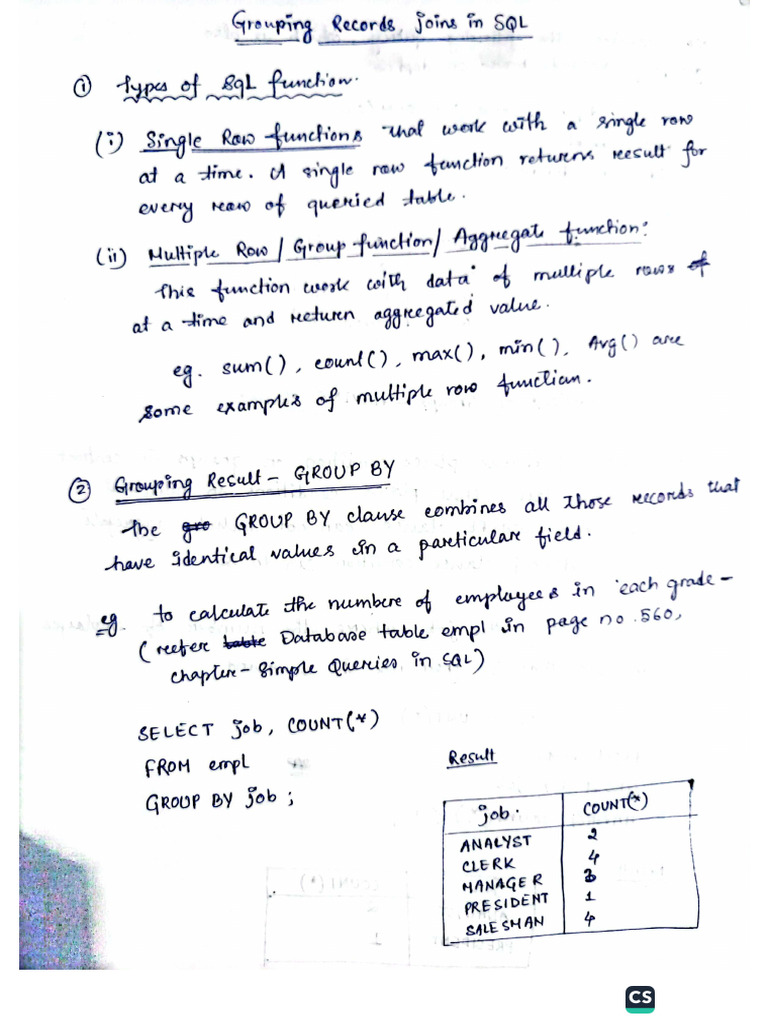 Grouping Records, Joins in SQL
① Types of SQL function.
(i) Single Row functions that work with a single row
at a time. A single row function returns result for
every row of queried table.
(ii) Multiple Row / Group function / Aggregate function:
This function work with data of multiple rows of
at a time and return aggregated value.
eg. sum(), count(), max(), min(), Avg() are
some examples of multiple row function.
② Grouping Result - GROUP BY
The gro GROUP BY clause combines all those records that
have identical values in a particular field.
eg. to calculate the number of employees in each grade -
(refer table Database table empl in page no. 560,
chapter - Simple Queries in SQL)
SELECT job, COUNT(*)
FROM empl
GROUP BY job;
Result
job. COUNT(*)
ANALYST 2
CLERK 4
MANAGER 3
PRESIDENT 1
SALESMAN 4
CS